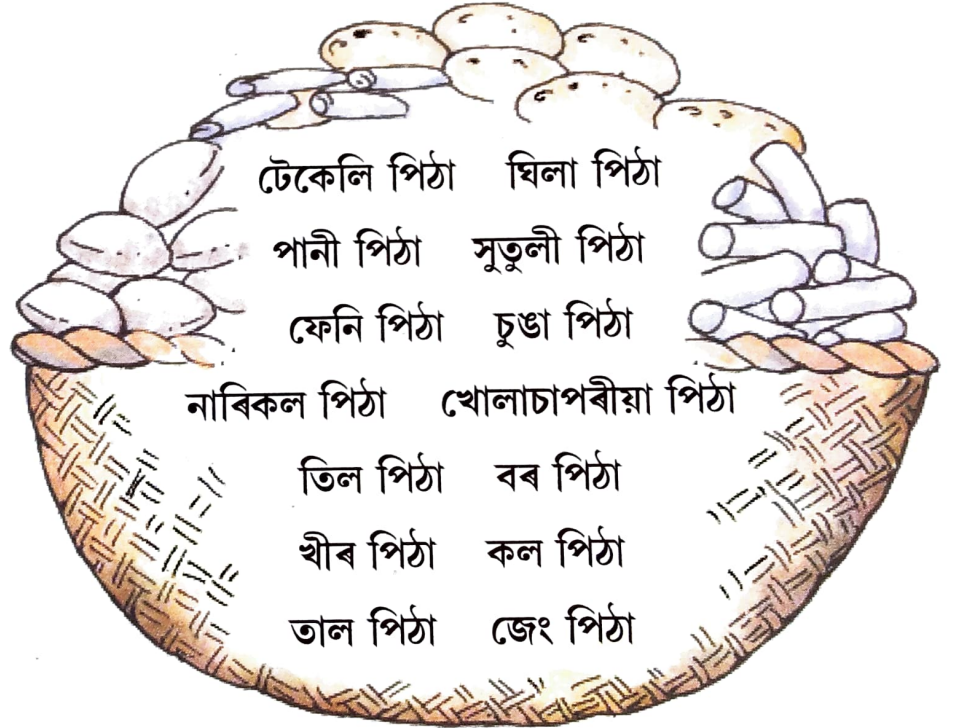 টেকেলি পিঠা ঘিলা পিঠা
পানী পিঠা সুতুলী পিঠা
ফেনি পিঠা চুঙা পিঠা
নাৰিকল পিঠা খোলাচাপৰীয়া পিঠা
তিল পিঠা বৰ পিঠা
খীৰ পিঠা কল পিঠা
তাল পিঠা জেং পিঠা